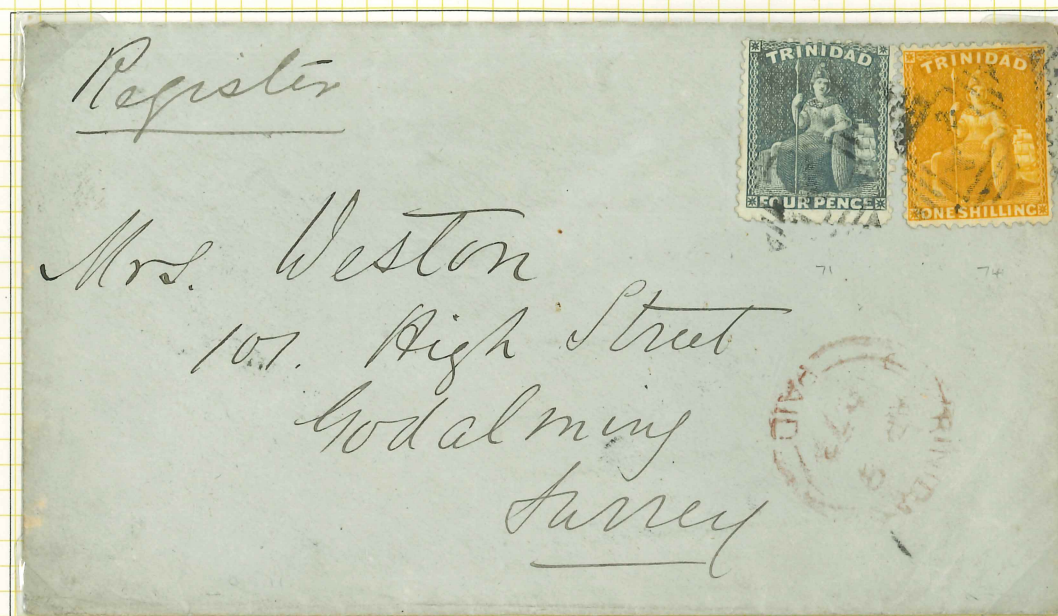 Register
TRINIDAD
FOUR PENCE
TRINIDAD
ONE SHILLING
71
74
Mrs. Weston
101. High Street
Godalming
Surrey
TRINIDAD
PAID